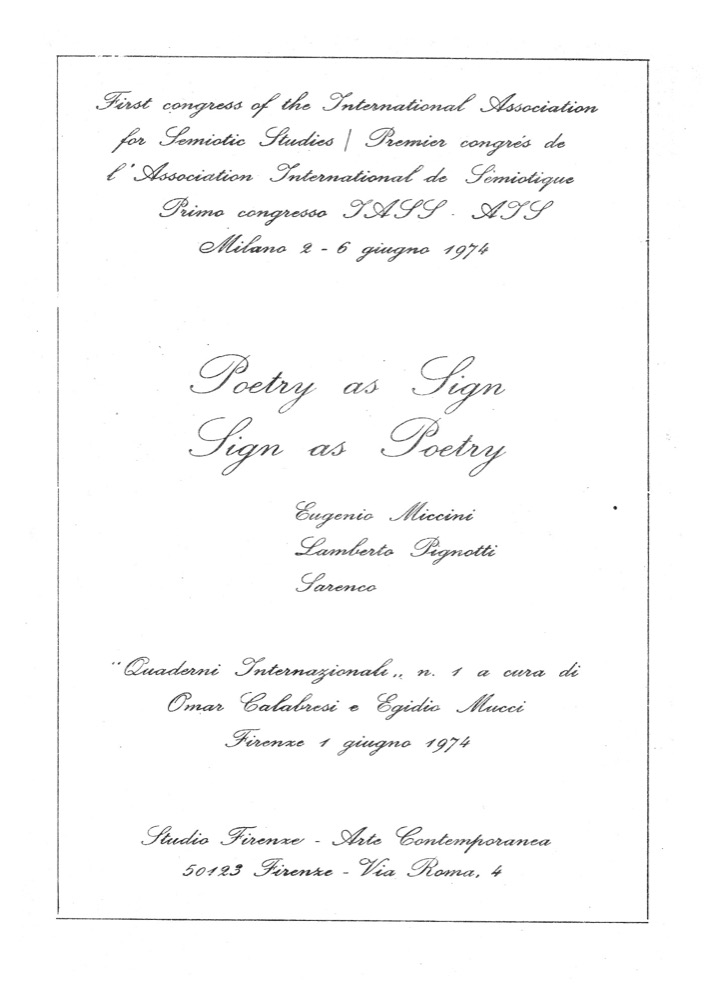 First congress of the International Association
for Semiotic Studies | Premier congrés de
l'Association International de Sémiotique
Primo congresso IASS - AIS
Milano 2 - 6 giugno 1974
Poetry as Sign
Sign as Poetry
Eugenio Miccini
Lamberto Pignotti
Sarenco
"Quaderni Internazionali„ n. 1 a cura di
Omar Calabresi e Egidio Mucci
Firenze 1 giugno 1974
Studio Firenze - Arte Contemporanea
50123 Firenze - Via Roma, 4